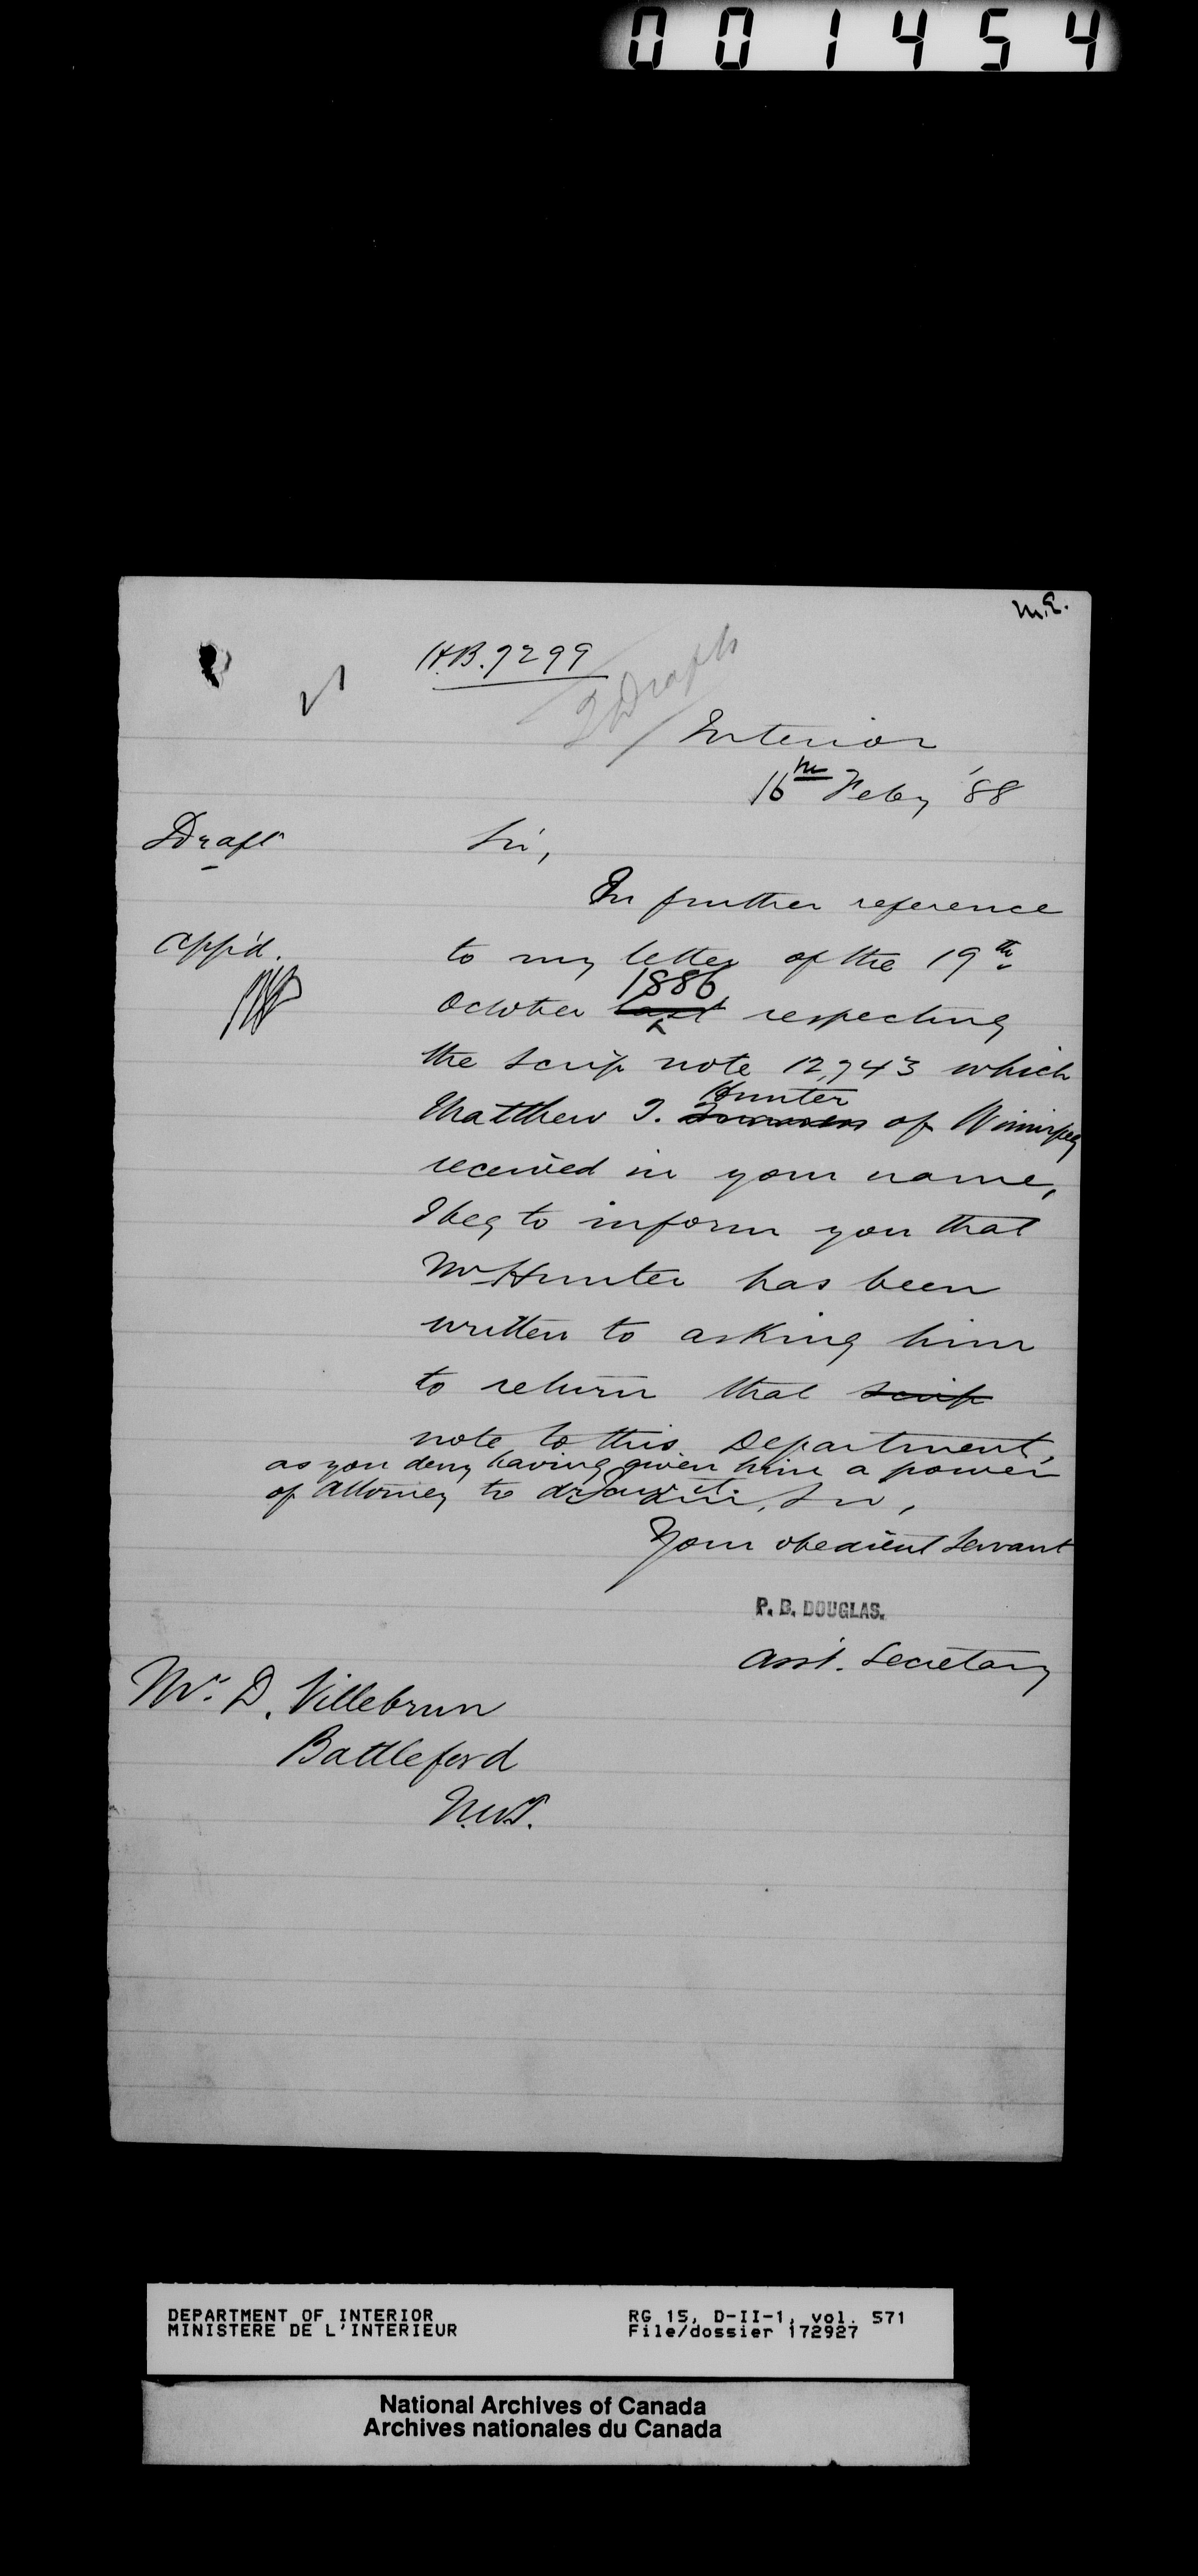 001454
M.E.
H.B. 7299
2 Drafts
Interior
16th Feby '88
Draft
Sir,
In further reference
app'd.
to my letter of the 19th
October last 1886 respecting
the scrip note 12,743 which
Matthew J. Hunter of Winnipeg
received in your name,
I beg to inform you that
Mr Hunter has been
written to asking him
to return that scrip
note to this Department,
as you deny having given him a power
of Attorney to draw it. Sir,
Your obedient Servant
P. B. DOUGLAS.
Asst. Secretary
Mr. D. Villebrun
Battleford
N.W.T.
DEPARTMENT OF INTERIOR RG 15, D-II-1, vol. 571
MINISTERE DE L'INTERIEUR File/dossier 172927
National Archives of Canada
Archives nationales du Canada